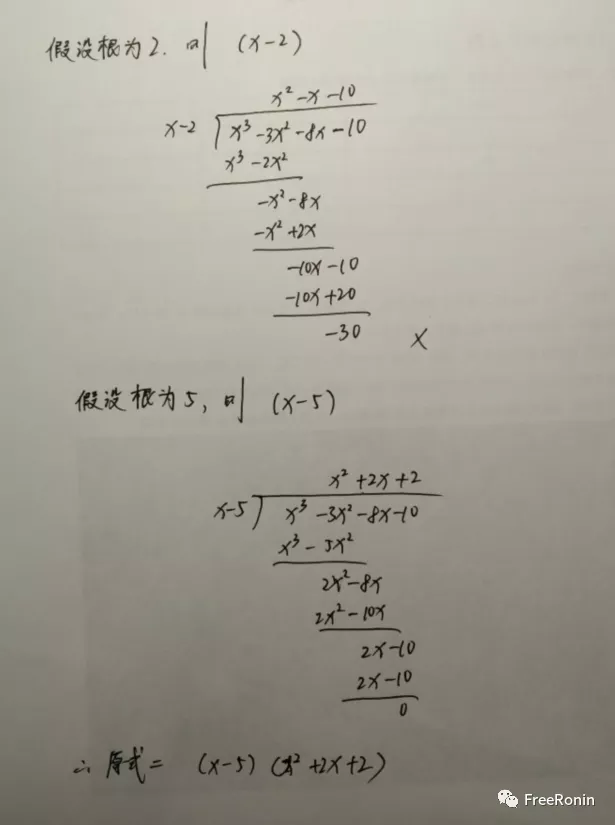 假设根为2. 则 (x-2)
x² -x -10
x-2 x³ -3x² -8x -10
x³ -2x²
-x² -8x
-x² +2x
-10x -10
-10x +20
-30 X
假设根为5, 则 (x-5)
x² +2x +2
x-5 x³ -3x² -8x -10
x³ - 5x²
2x² -8x
2x² -10x
2x -10
2x -10
0
∴ 原式 = (x-5) (x² +2x +2)
FreeRonin